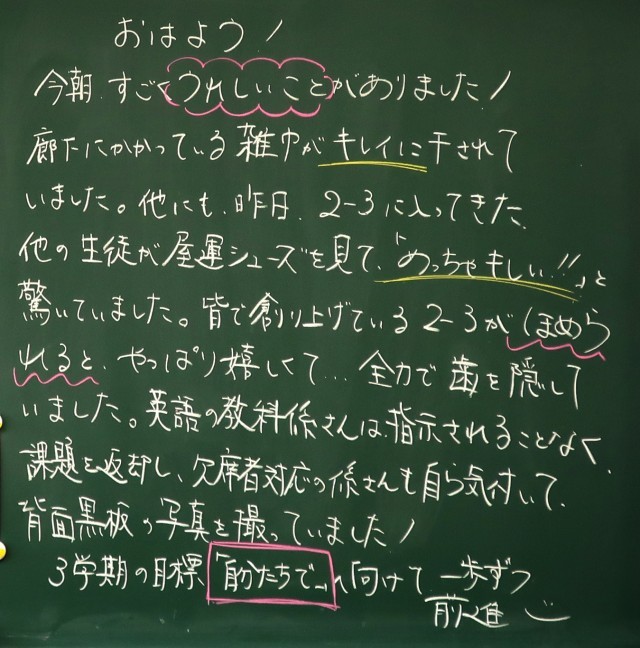 おはよう！
今朝、すごくうれしいことがありました！
廊下にかかっている雑巾がキレイに干されて
いました。他にも、昨日、2-3に入ってきた
他の生徒が屋運シューズを見て、「めっちゃキレい!!」と
驚いていました。皆で創り上げている2-3がほめら
れると、やっぱり嬉しくて…全力で歯を隠して
いました。英語の教科係さんは、指示されることなく、
課題を返却し、欠席者対応の係さんも自ら気付いて、
背面黒板の写真を撮っていました！
3学期の目標、「自分たちで」へ向けて一歩ずつ
前進